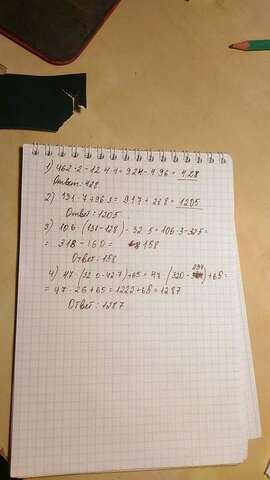 1) 462·2-124·4=924-496=428
Ответ: 428
2) 131·7+96·3=917+288=1205
Ответ: 1205
3) 106·(131-128)-32·5=106·3-32·5=
=318-160=158
Ответ: 158
4) 47·(320-42·7)+65=47·(320-294)+65=
=47·26+65=1222+65=1287
Ответ: 1287